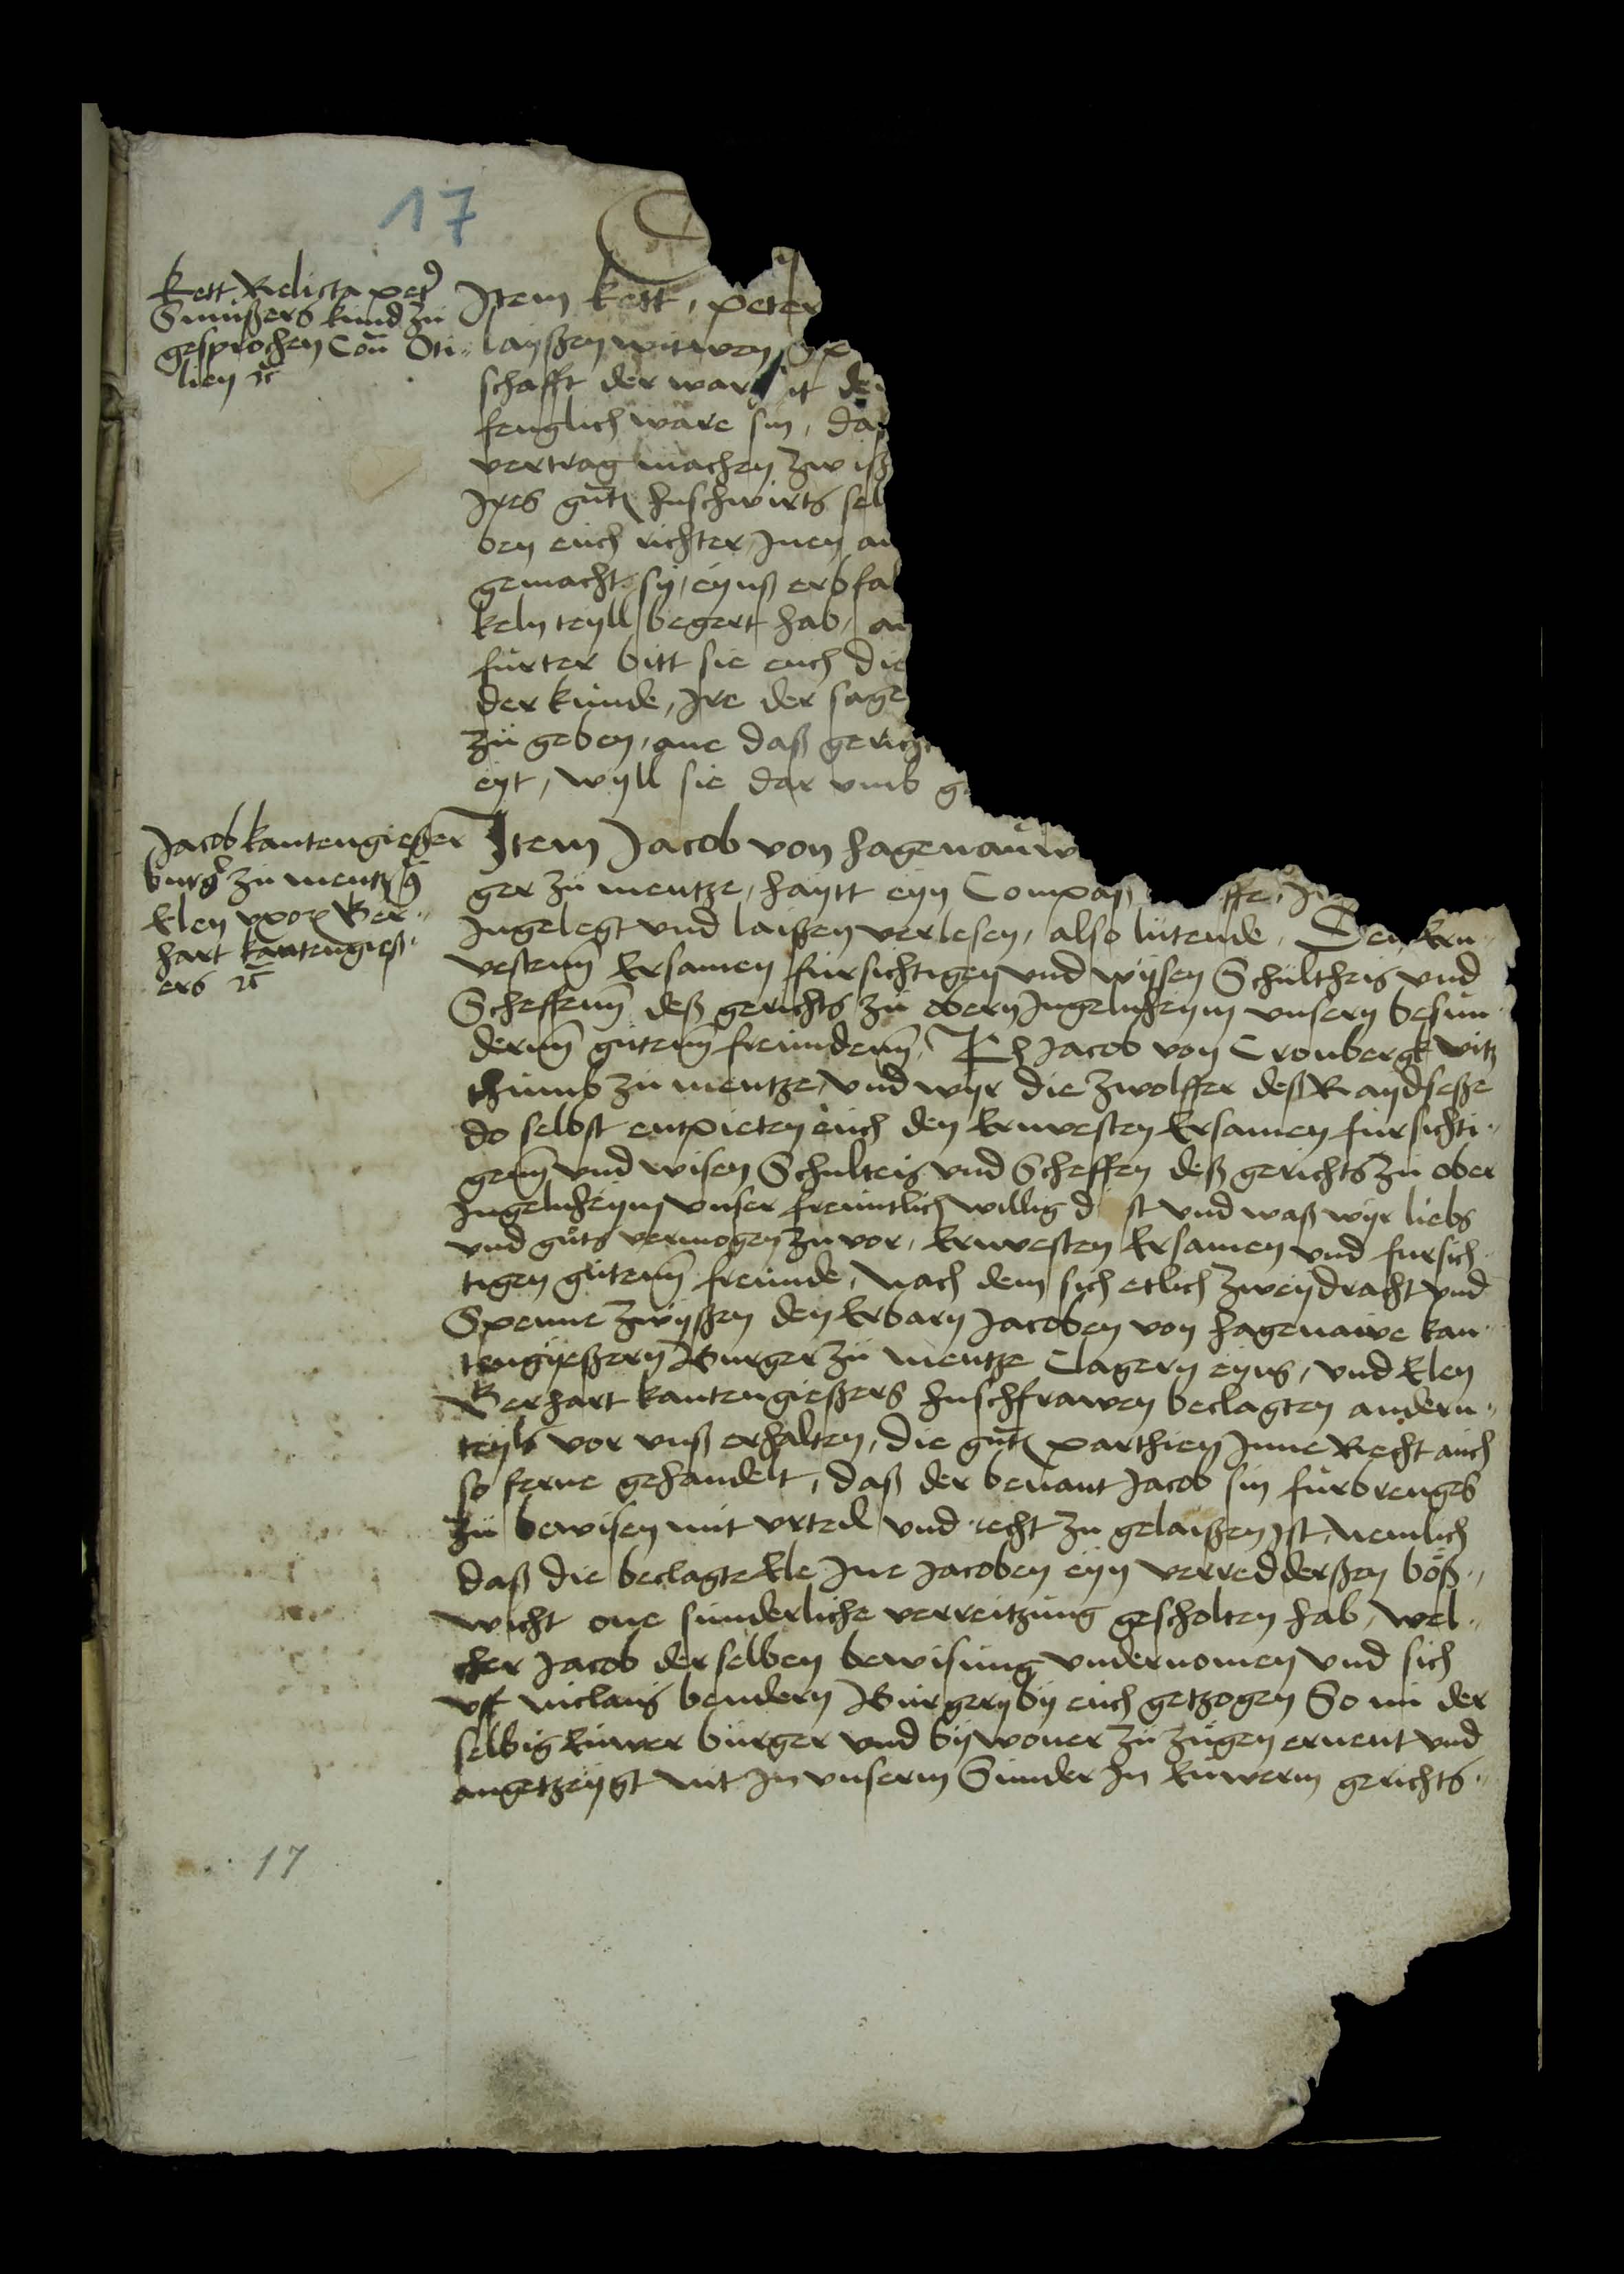 17
Kett Relicta pet
Snußers kund zu
gesprochen Con Oti-
lien
Item Kett, peter
layßen witwen
schafft der war it
fenglich ware sin, das
vertrag machen zwiß
Jres gut huschwirts sel
ben euch richter Jnen an
gemacht sy, eynß erbfal
keln teyll begert hab, an
furter bitt sie euch die
der kunde, Jre der sage
zu geben, ane daß gericht
eyt, wyll sie dar vmb g
Jacob kantengießer
burg zu mentz
Elen vxor Ger-
hart kantengieß-
ers
Item Jacob von hagenauw
ger zu mentze, haytt eyn Compaß ffe, Jn
Jngelegt vnd laißen verlesen, also lutende, Den Ern-
vestenn Ersamen fursichtigen vnd wysen Schultheis vnd
Scheffenn deß gerichts zu obern Jngelnheym vnsern besun-
dernn gutenn freundenn, Ich Jacob von Cronbergk vitz
thumb zu mentze, vnd wyr die zwolffer deß Raydseße
do selbst entpieten euch den Ernvesten Ersamen fursichti-
genn vnd wisen Schulteis vnd Scheffen deß gerichts zu ober
Jngelnheym vnser freuntlich willig d st vnd waß wyr liebs
vnd guts vermogen zu vor, Ernvesten Ersamen vnd fursich-
tigen gutenn freunde, Nach dem sich etlich zweydracht vnd
Spenne zwyßen den Erbarn Jacoben von hagenauwe kan-
tengyeßern Burger zu mentze Clagern eyns, vnd Elen
Gerhart kantengießers huschfrawen beclagten andern-
teyls vor vnß erhalten, die gut parthien Jnne Recht auch
so ferne gehandelt, daß der benant Jacob sin furbrenges
zu bewisen mit vrteil vnd recht zu gelaißen Jst, nemlich
daß die beclagte Ele Jne Jacoben eyn verredderßen böß-
wicht one sunderliche verreitzung gescholten hab, wel-
cher Jacob der selben bewisung vndernomen vnd sich
vff niclaus bendern Burgern by euch getzogen So nu der
selbig Euwer burger vnd bywoner zu zugen ernent vnd
angetzeygt nit Jn vnserm Sunder Jn Euwerm gerichts-
17